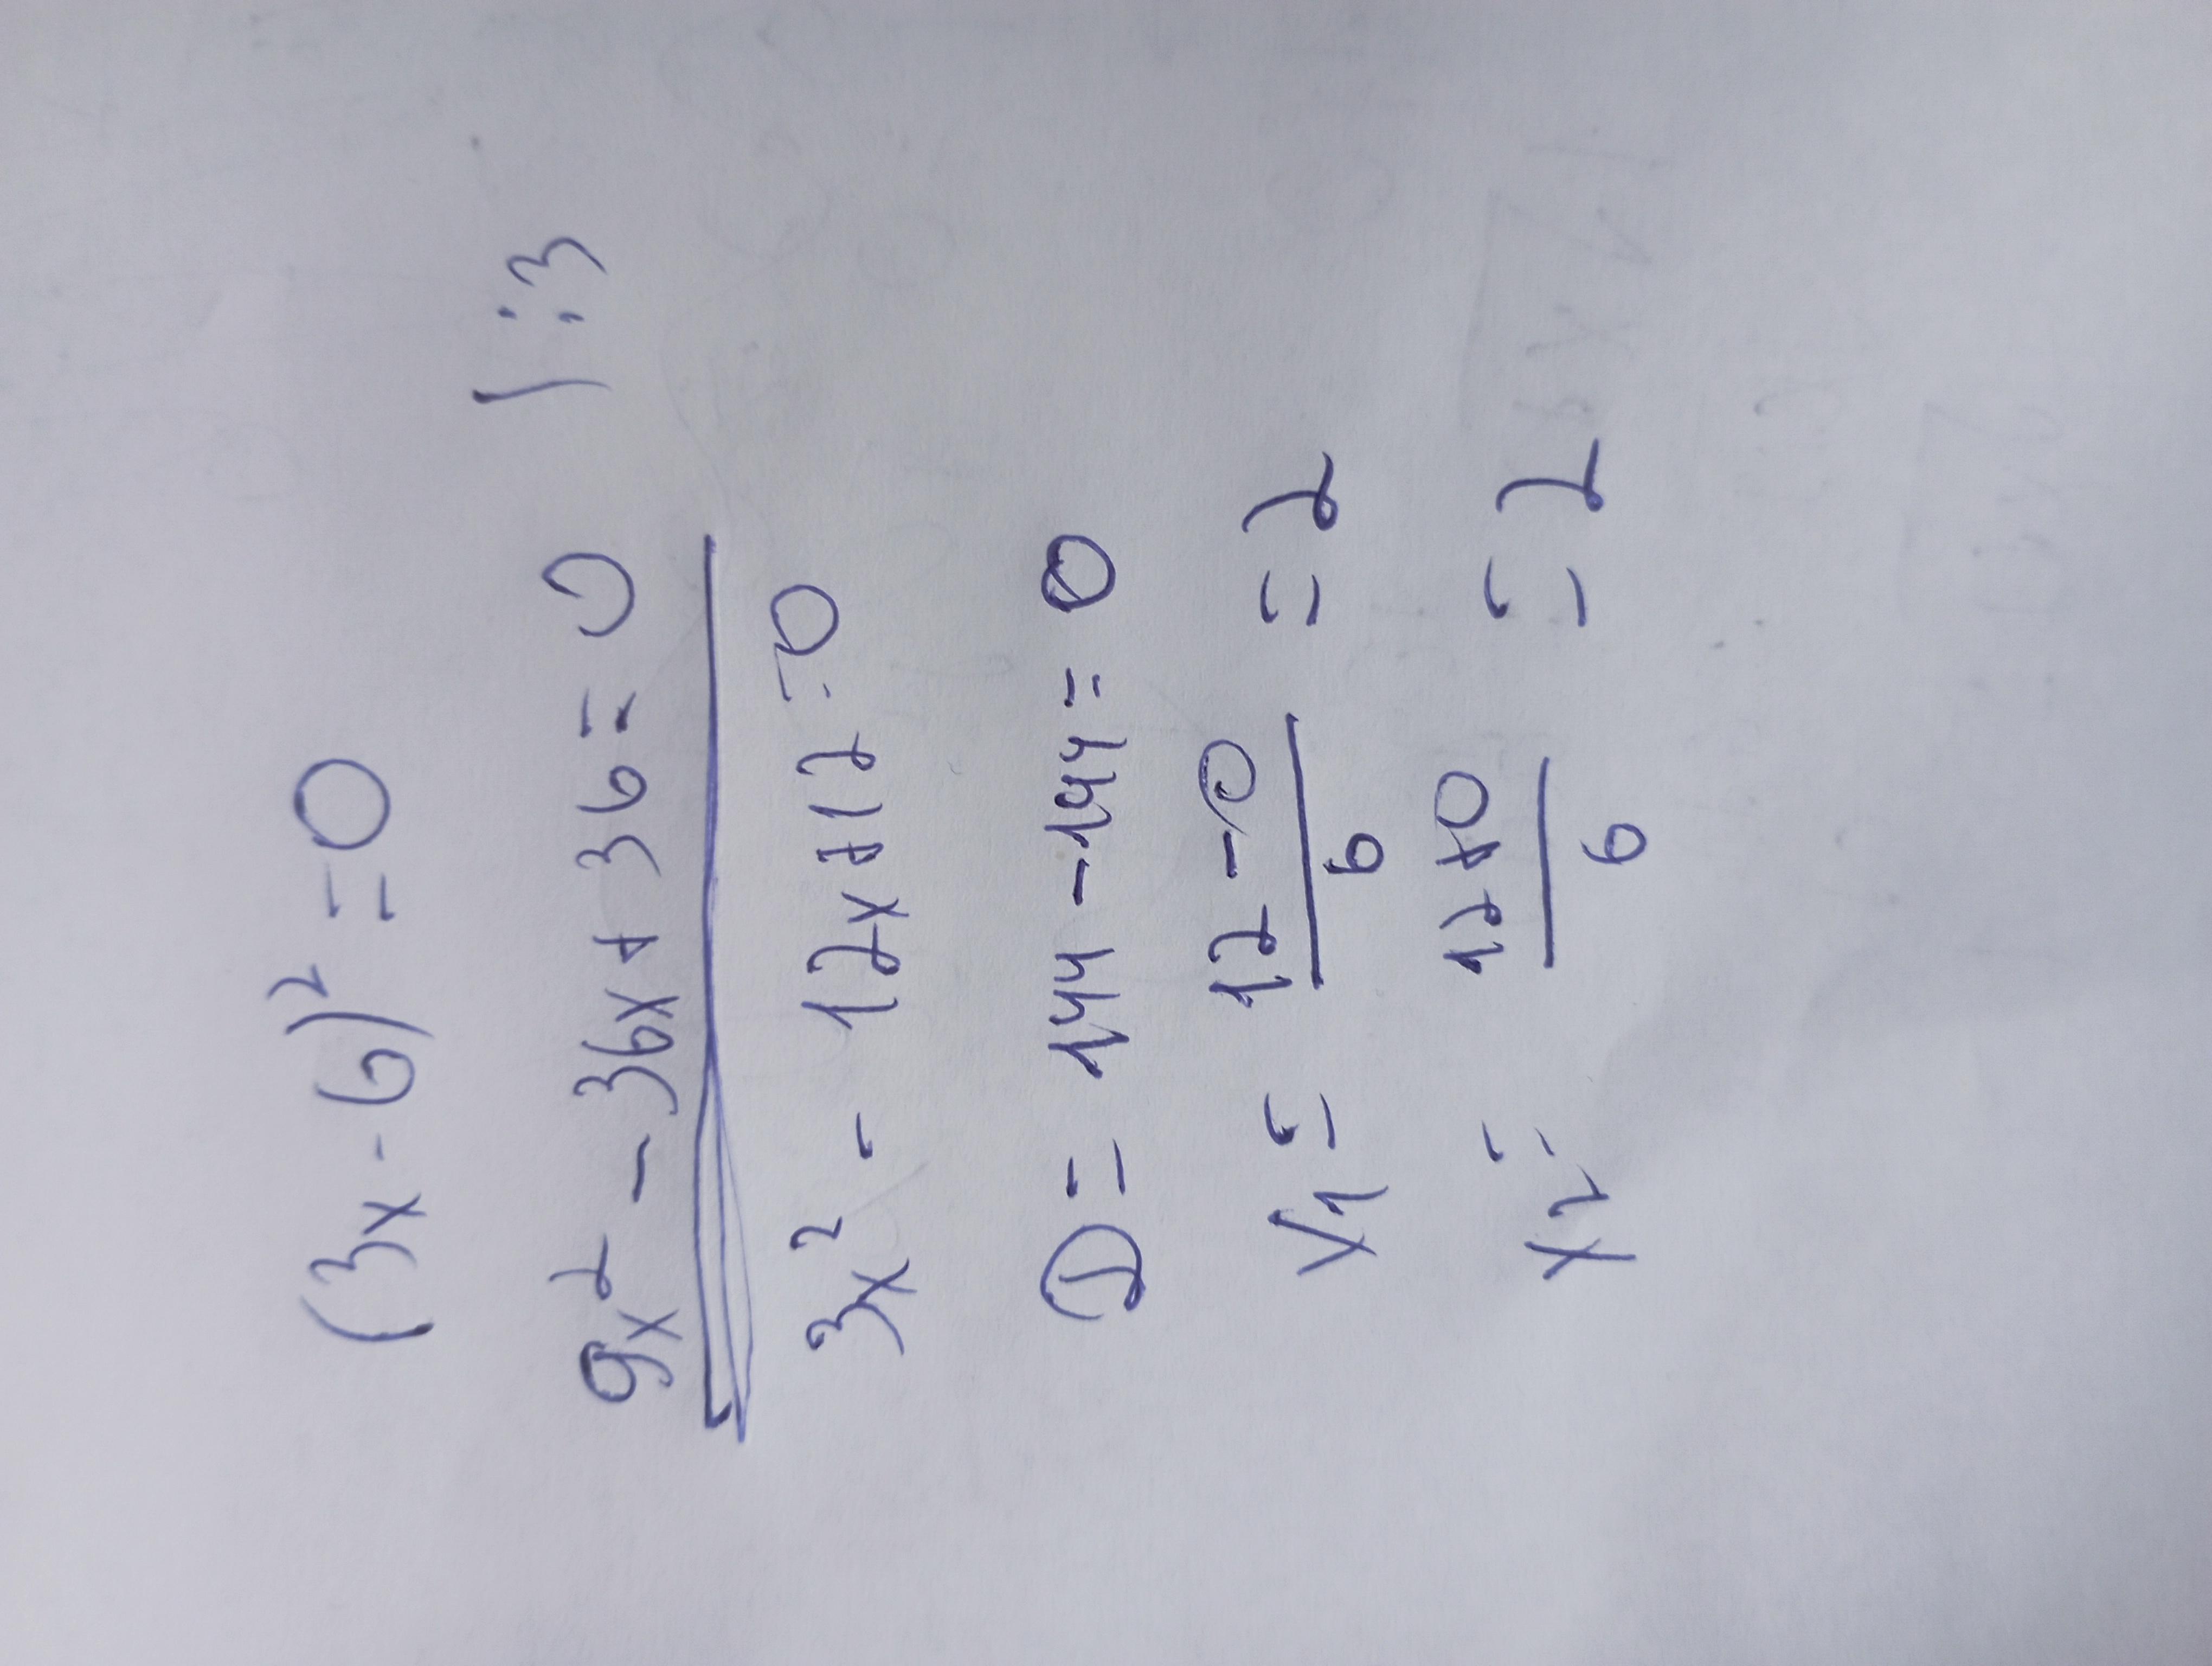 (3x - 6)² = 0
9x² - 36x + 36 = 0 | : 3
3x² - 12x + 12 = 0
D = 144 - 144 = 0
x1 = 12 - 0 / 6 = 2
x2 = 12 + 0 / 6 = 2